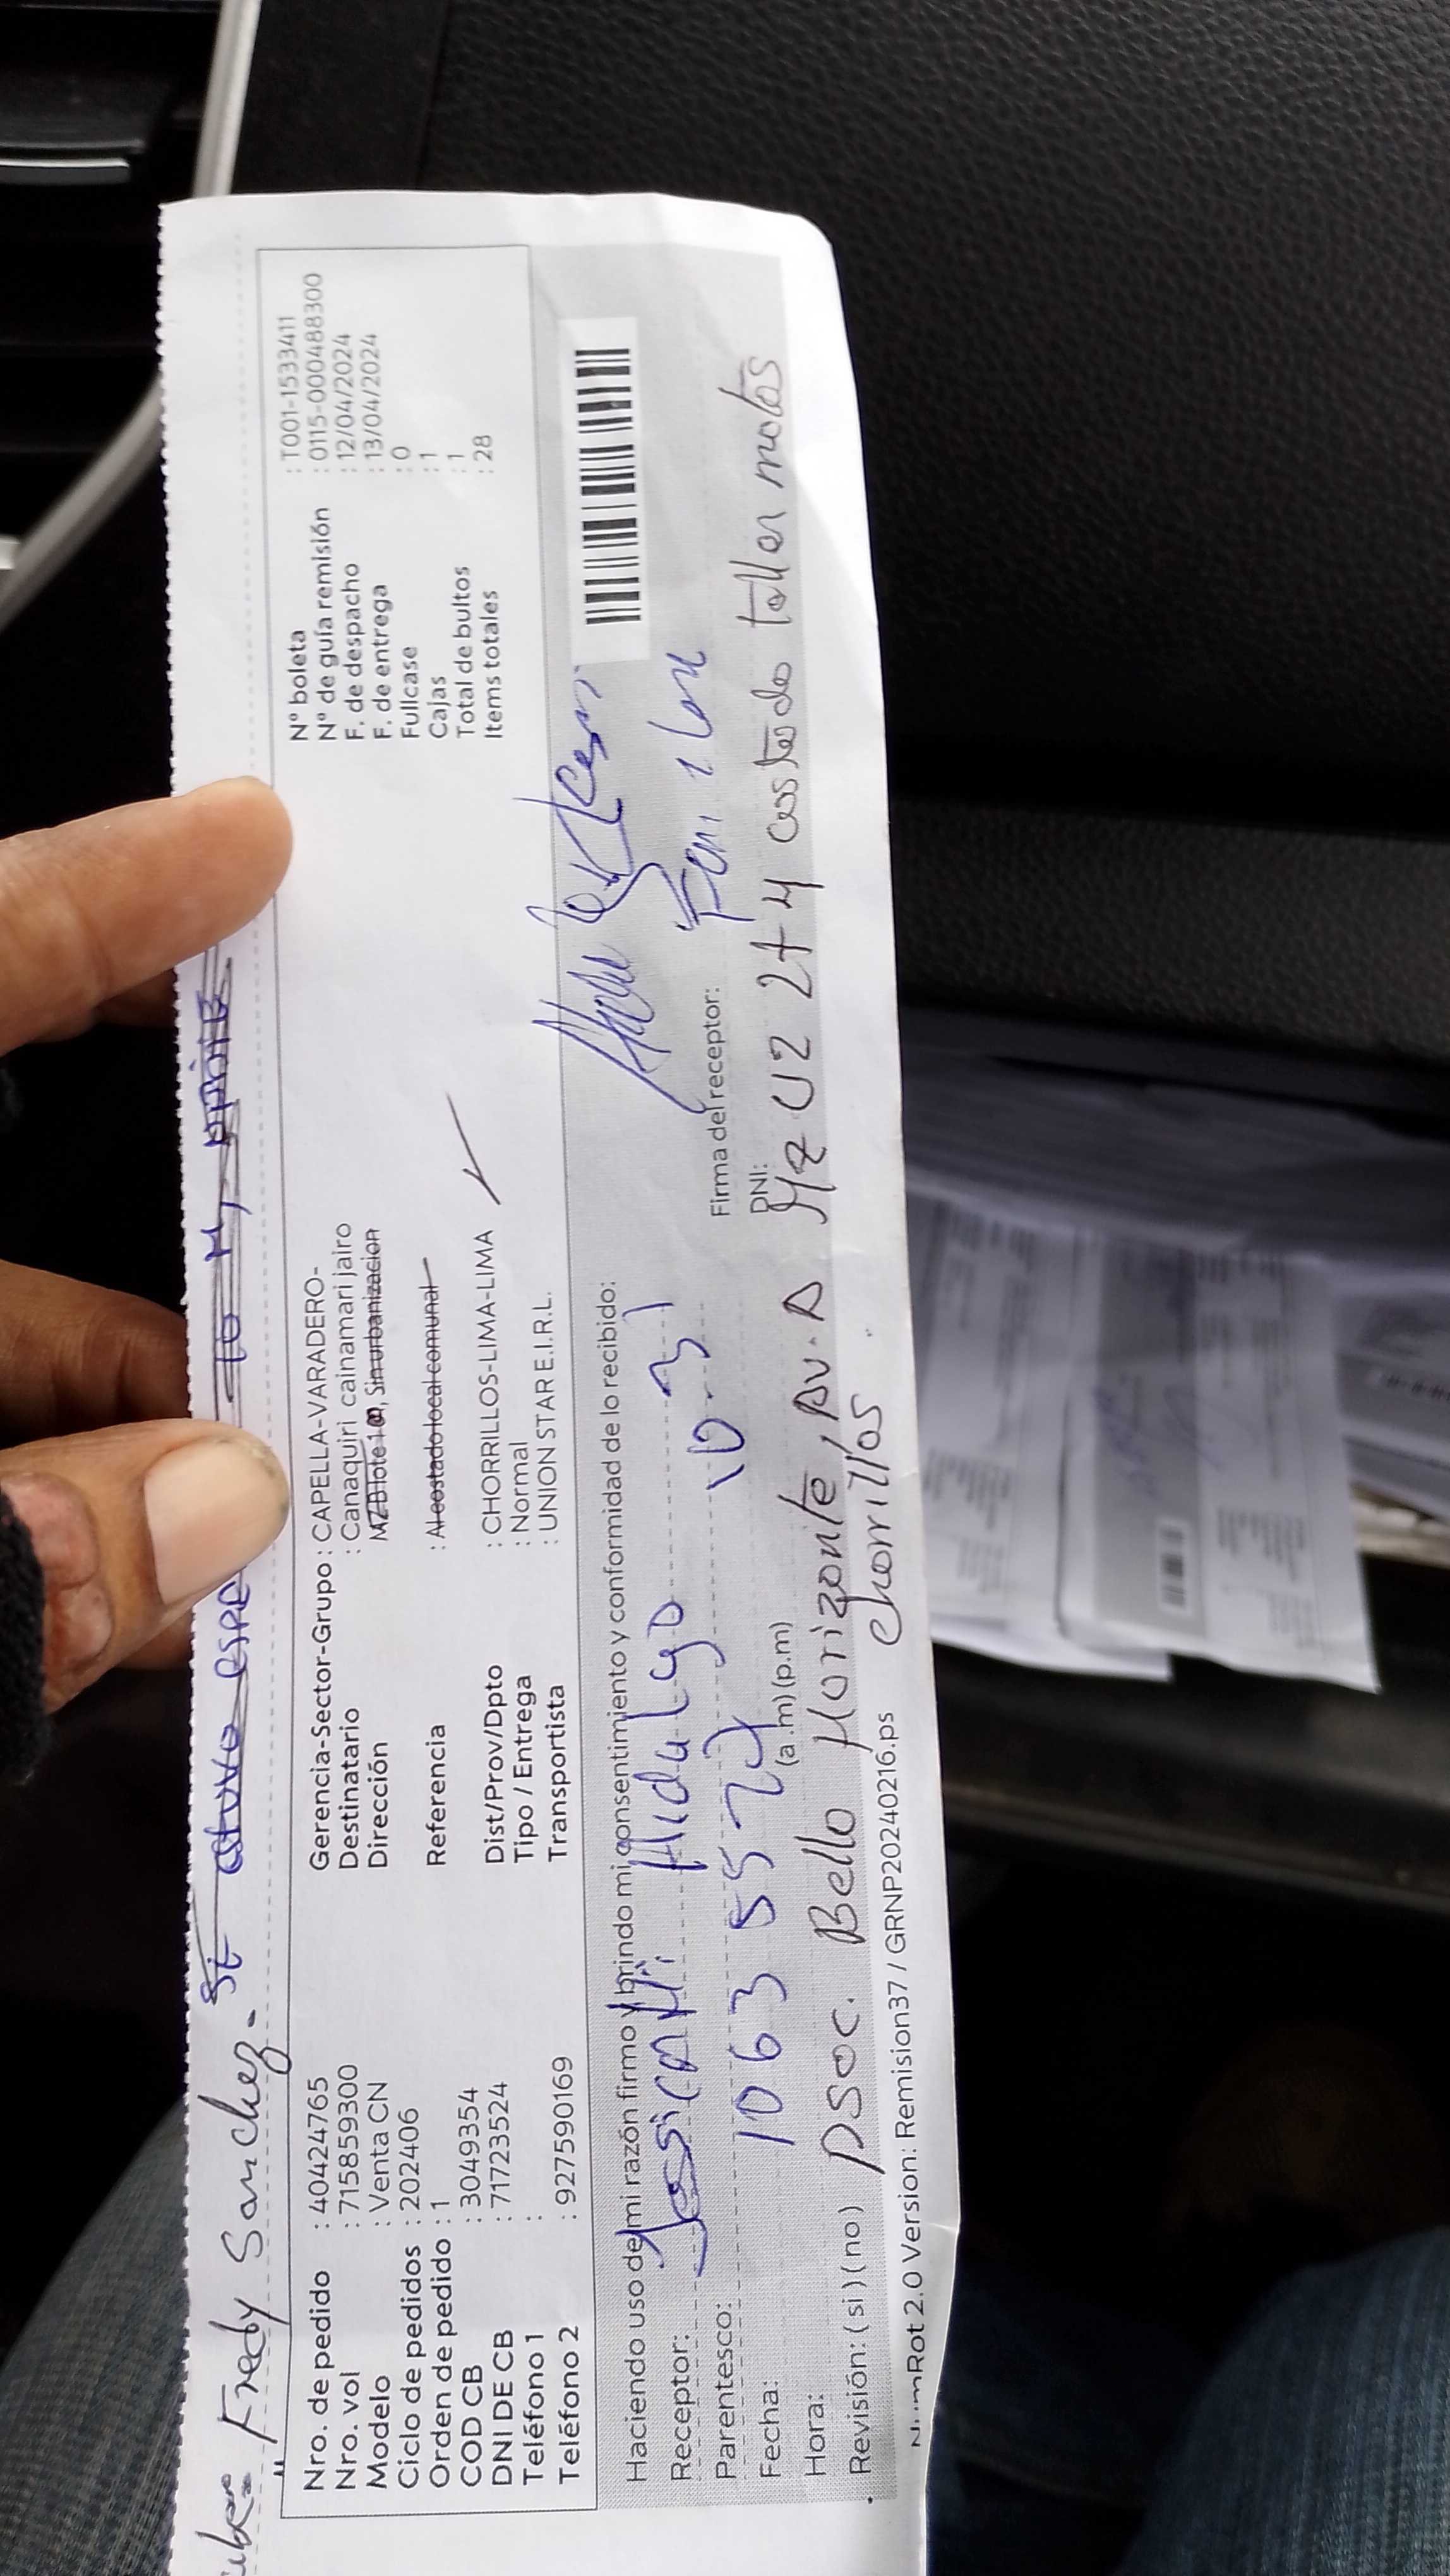 Fredy Sanchez.
Nro. de pedido : 40424765
Nro. vol : 715859300
Modelo : Venta CN
Ciclo de pedidos : 202406
Orden de pedido : 1
COD CB : 3049354
DNI DE CB : 71723524
Teléfono 1 :
Teléfono 2 : 927590169
Gerencia-Sector-Grupo : CAPELLA-VARADERO-
Destinatario : Canaquiri cainamari jairo
Dirección MZB lote 1, Sin urbanizacion
Referencia : Al costado local comunal
Dist/Prov/Dpto : CHORRILLOS-LIMA-LIMA
Tipo / Entrega : Normal
Transportista : UNION STAR E.I.R.L.
N° boleta : T001-1533411
N° de guía remisión : 0115-000488300
F. de despacho : 12/04/2024
F. de entrega : 13/04/2024
Fullcase : 0
Cajas : 1
Total de bultos : 1
Items totales : 28
Haciendo uso de mi razón firmo y brindo mi consentimiento y conformidad de lo recibido:
Receptor: Hidalgo
Parentesco:
Fecha:
Hora: (a.m) (p.m)
Firma del receptor:
DNI:
Revisión: (si) (no)
Asoc. Bello Horizonte, Av. A Mz U2 Lt 4 costado taller motos
chorrillos
Rot 2.0 Version: Remision37 / GRNP20240216.ps